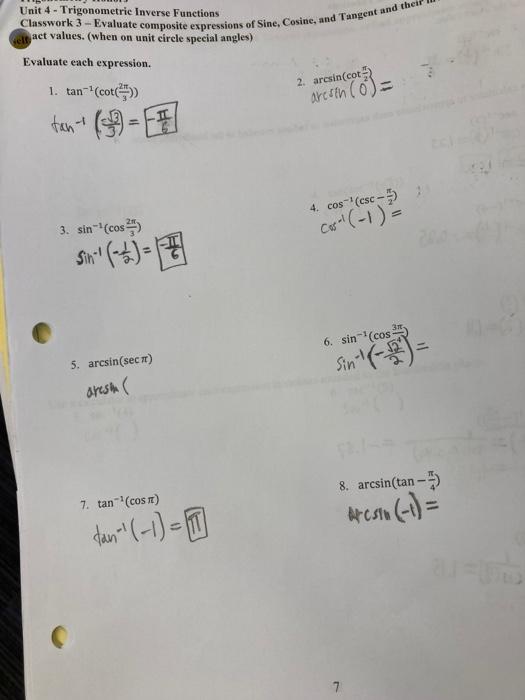 Unit 4 - Trigonometric Inverse Functions
Classwork 3 – Evaluate composite expressions of Sine, Cosine, and Tangent and their
act values. (when on unit circle special angles)
Evaluate each expression.
1. tan⁻¹(cot(2π/3))
tan⁻¹(-√3/3) = -π/6
2. arcsin(cot π/2)
arcsin(0) =
3. sin⁻¹(cos 2π/3)
sin⁻¹(-1/2) = -π/6
4. cos⁻¹(csc -π/2)
cos⁻¹(-1) =
5. arcsin(sec π)
arcsin(
6. sin⁻¹(cos 3π/4)
sin⁻¹(-√2/2) =
7. tan⁻¹(cos π)
tan⁻¹(-1) = π
8. arcsin(tan -π/4)
arcsin(-1) =
7